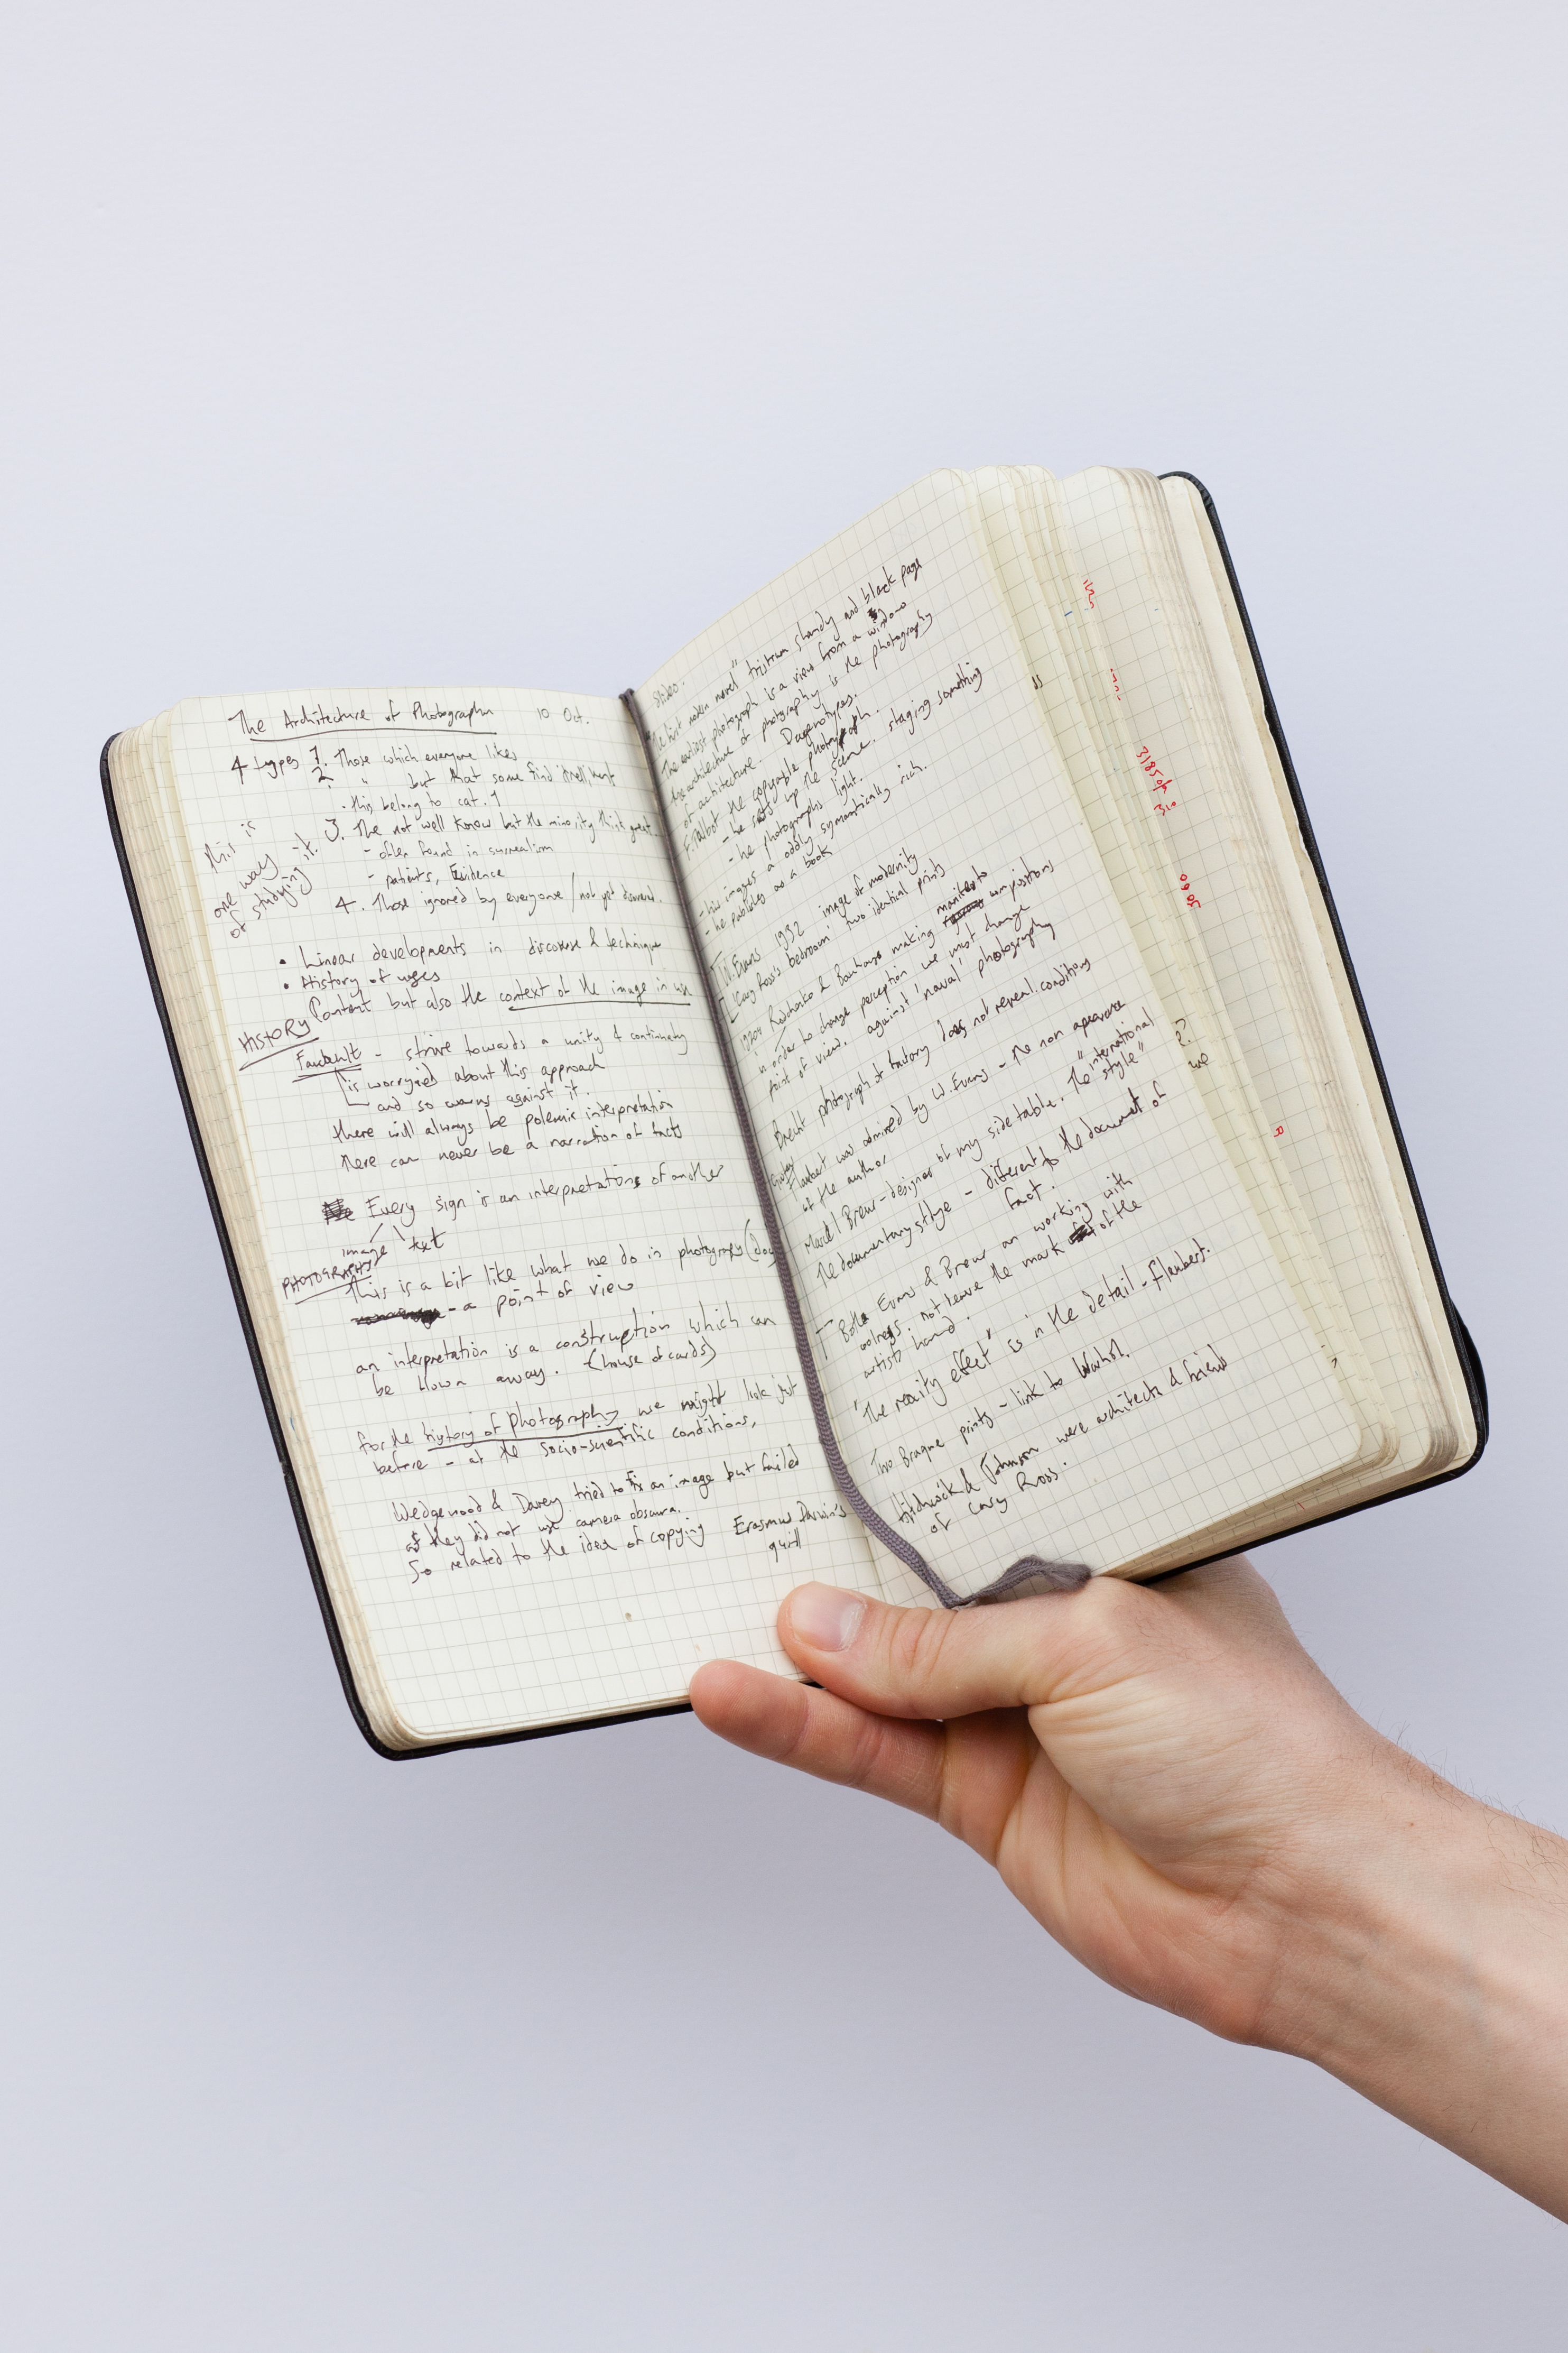 The Architecture of Photography 10 Oct.
4 types 1. Those which everyone likes
2. " but that some find itself
- this belong to cat. 1
3. The not well know but the minority think great
- often found in surrealism
- patients, Evidence
4. Those ignored by everyone / not yet
this is
one way
of studying it.
• Linear developments in discourse & technique
• History of uses
Content but also the context of the image in use
HISTORY
Foucault - strive towards a unity & continuity
is worried about this approach
and so warns against it.
there will always be polemic interpretation
there can never be a narration of facts
Every sign is an interpretations of another
image text
PHOTOGRAPHY
This is a bit like what we do in photography (doc
- a point of view
an interpretation is a construction which can
be blown away. (house of cards)
for the history of photography we might look just
before - at the socio-scientific conditions,
Wedgenood & Davey tried to fix an image but failed
as they did not use camera obscura.
So related to the idea of copying Erasmus Darwin's
quill
slideo.
The first modern novel" tristram shandy and black page
The earliest photograph is a view from a window
the architecture of photography is the photography
of architecture. Daguerrotypes.
F. Talbot the copyable photograph.
- he sets up the scene. staging something
- he photographs light.
- his images a oddly symantically rich.
- he publishes as a book
W. Evans 1932 image of modernity
'Cary Ross's bedroom' two identical prints
1920s Rodchenko & Bauhaus making manifesto compositions
in order to change perception we must change
point of view. against 'naval' photography
Brecht photograph of factory does not reveal conditions
Gustav Flaubert was admired by W. Evans - the non apearance
of the author
Marcel Breur - designer of my side table. The "international
style"
The documentary stlye - different to the document of
fact.
Both Evans & Breur an working with
not leave the mark of the
artists hand.
'The reality effect" is in the detail - Flaubert.
Two Braque prints - link to Warhol.
Hitchcock & Johnson were architects & friend
of Cary Ross.
??
we